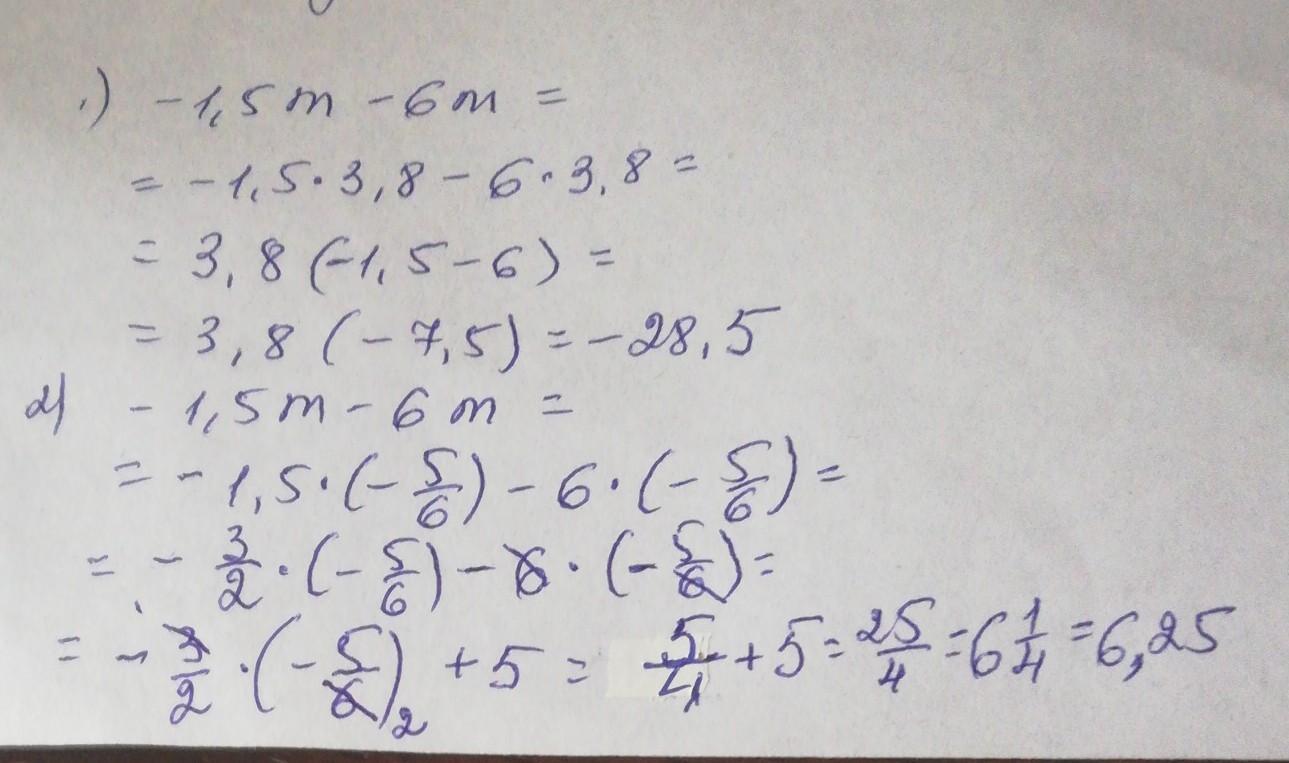 1) -1,5m - 6m =
= -1,5·3,8 - 6·3,8 =
= 3,8(-1,5-6) =
= 3,8(-7,5) = -28,5
2) -1,5m - 6m =
= -1,5·(-5/6) - 6·(-5/6) =
= -3/2·(-5/6) - 6·(-5/6) =
= -3/2·(-5/6)2 + 5 = 5/4 + 5 = 25/4 = 6 1/4 = 6,25